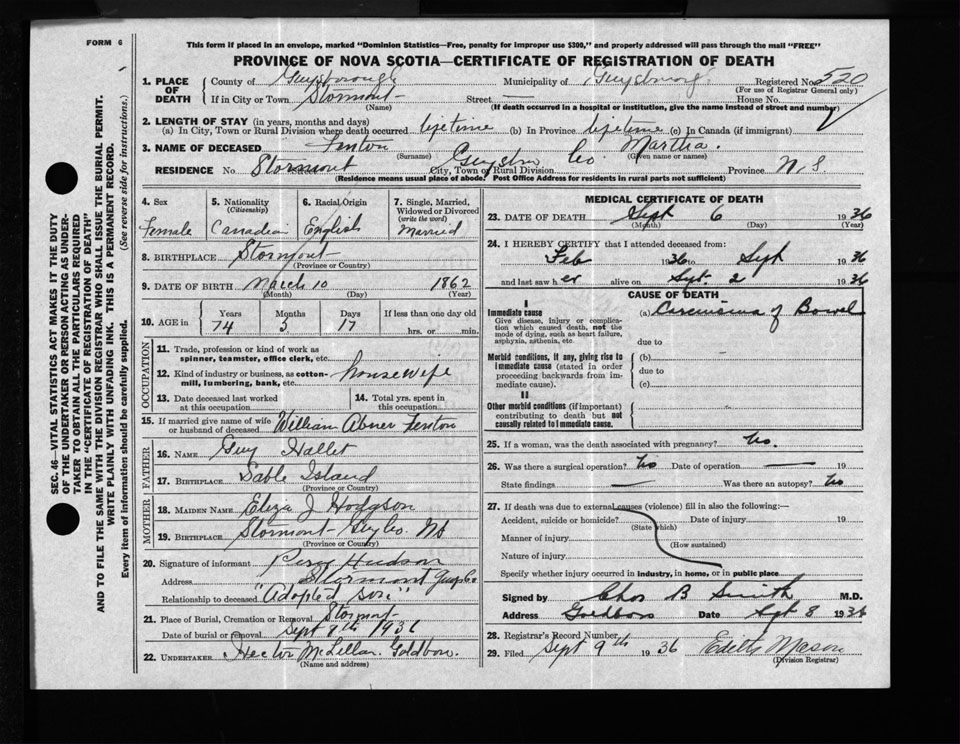 FORM 6
This form if placed in an envelope, marked "Dominion Statistics—Free, penalty for improper use $300," and properly addressed will pass through the mail "FREE"
PROVINCE OF NOVA SCOTIA—CERTIFICATE OF REGISTRATION OF DEATH
1. PLACE OF DEATH County of Guysborough Municipality of Guysboro Registered No. 520
(For use of Registrar General only)
If in City or Town Stormont Street — House No.
(Name) (If death occurred in a hospital or institution, give the name instead of street and number)
2. LENGTH OF STAY (in years, months and days)
(a) In City, Town or Rural Division where death occurred lifetime (b) In Province lifetime (c) In Canada (if immigrant)
3. NAME OF DECEASED Fenton Martha.
(Surname) (Given name or names)
RESIDENCE No. Stormont Co. City, Town or Rural Division Province N.S
(Residence means usual place of abode. Post Office Address for residents in rural parts not sufficient)
SEC. 46—VITAL STATISTICS ACT MAKES IT THE DUTY
OF THE UNDERTAKER OR PERSON ACTING AS UNDER-
TAKER TO OBTAIN ALL THE PARTICULARS REQUIRED
IN THE "CERTIFICATE OF REGISTRATION OF DEATH"
AND TO FILE THE SAME WITH THE DIVISION REGISTRAR WHO SHALL ISSUE THE BURIAL PERMIT.
WRITE PLAINLY WITH UNFADING INK. THIS IS A PERMANENT RECORD.
Every item of information should be carefully supplied. (See reverse side for instructions.)
4. Sex 5. Nationality (Citizenship) 6. Racial Origin 7. Single, Married, Widowed or Divorced (write the word)
Female Canadian English Married
8. BIRTHPLACE Stormont
(Province or Country)
9. DATE OF BIRTH March 10 1862
(Month) (Day) (Year)
10. AGE in Years Months Days If less than one day old
74 5 17 hrs. or min.
OCCUPATION
11. Trade, profession or kind of work as
spinner, teamster, office clerk, etc.
12. Kind of industry or business, as cotton-
mill, lumbering, bank, etc. housewife
13. Date deceased last worked at this occupation 14. Total yrs. spent in this occupation
15. If married give name of wife or husband of deceased William Abner Fenton
FATHER
16. NAME Guy Hallet
17. BIRTHPLACE Sable Island
(Province or Country)
MOTHER
18. MAIDEN NAME Eliza J Hodgson
19. BIRTHPLACE Stormont Guy Co. NS
(Province or Country)
20. Signature of informant Percy Hudson
Address Stormont Guys Co
Relationship to deceased "Adopted Son"
21. Place of Burial, Cremation or Removal Stormont
Date of burial or Removal Sept 8th 1936
22. UNDERTAKER Hector McLellan. Goldboro.
(Name and address)
MEDICAL CERTIFICATE OF DEATH
23. DATE OF DEATH Sept 6 1936
(Month) (Day) (Year)
24. I HEREBY CERTIFY that I attended deceased from:
Feb 1936 to Sept 1936
and last saw her alive on Sept. 2 1936
CAUSE OF DEATH
I
Immediate cause (a) Carcinoma of Bowel
Give disease, injury or complication which caused death, not the mode of dying, such as heart failure, asphyxia, asthenia, etc.
due to
Morbid conditions, if any, giving rise to immediate cause (stated in order proceeding backwards from immediate cause).
(b)
due to
(c)
II
Other morbid conditions (if important) contributing to death but not causally related to immediate cause.
25. If a woman, was the death associated with pregnancy? No.
26. Was there a surgical operation? No Date of operation — 19
State findings — Was there an autopsy? No
27. If death was due to external causes (violence) fill in also the following:—
Accident, suicide or homicide? Date of injury 19
(State which)
Manner of injury
(How sustained)
Nature of injury
Specify whether injury occurred in industry, in home, or in public place
Signed by Chas B Smith M.D.
Address Goldboro Date Sept 8 1936
28. Registrar's Record Number
29. Filed Sept 9th 1936 Edith Mason
(Division Registrar)